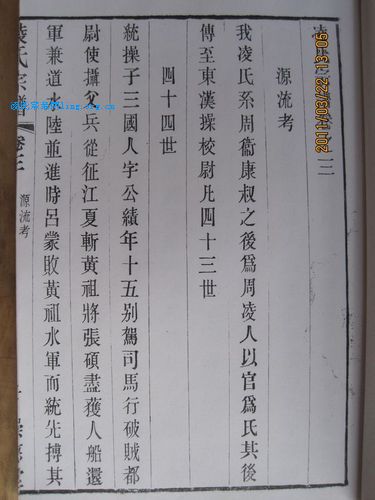 2011/03/22 13:05
源流考
我凌氏系周衞康叔之後爲周凌人以官爲氏其後
傳至東漢操校尉凡四十三世
四十四世
統操子三國人字公績年十五别駕司馬行破賊都
尉使攝父兵從征江夏斬黃祖將張碩盡獲人船還
軍兼道水陸並進時呂蒙敗黃祖水軍而統先搏其
凌氏宗譜
源流考